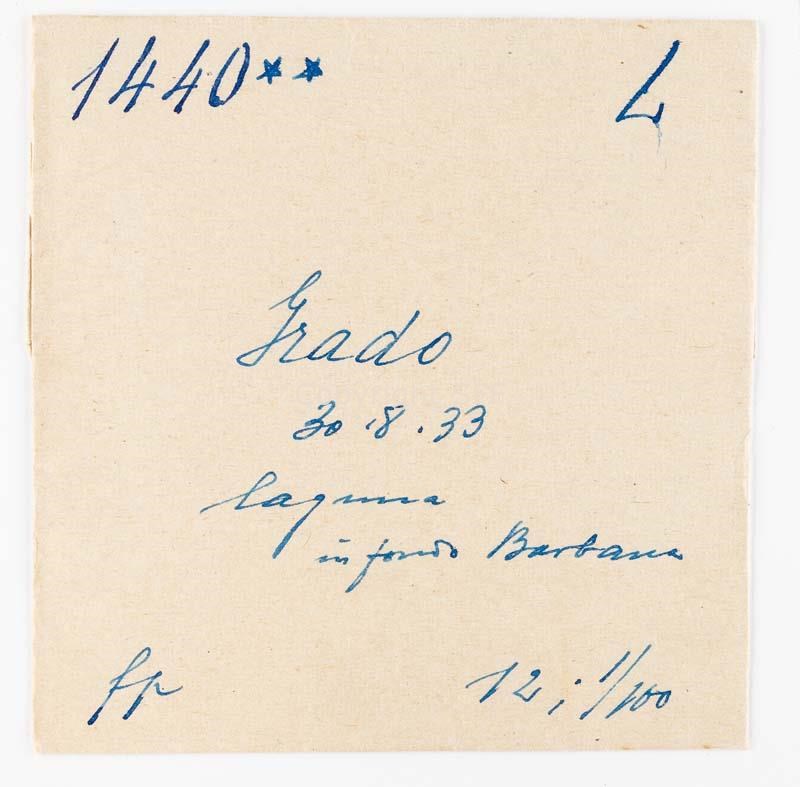 1440** L
Grado
30.8.33
laguna
in fondo Barbana
fp 12; 1/100